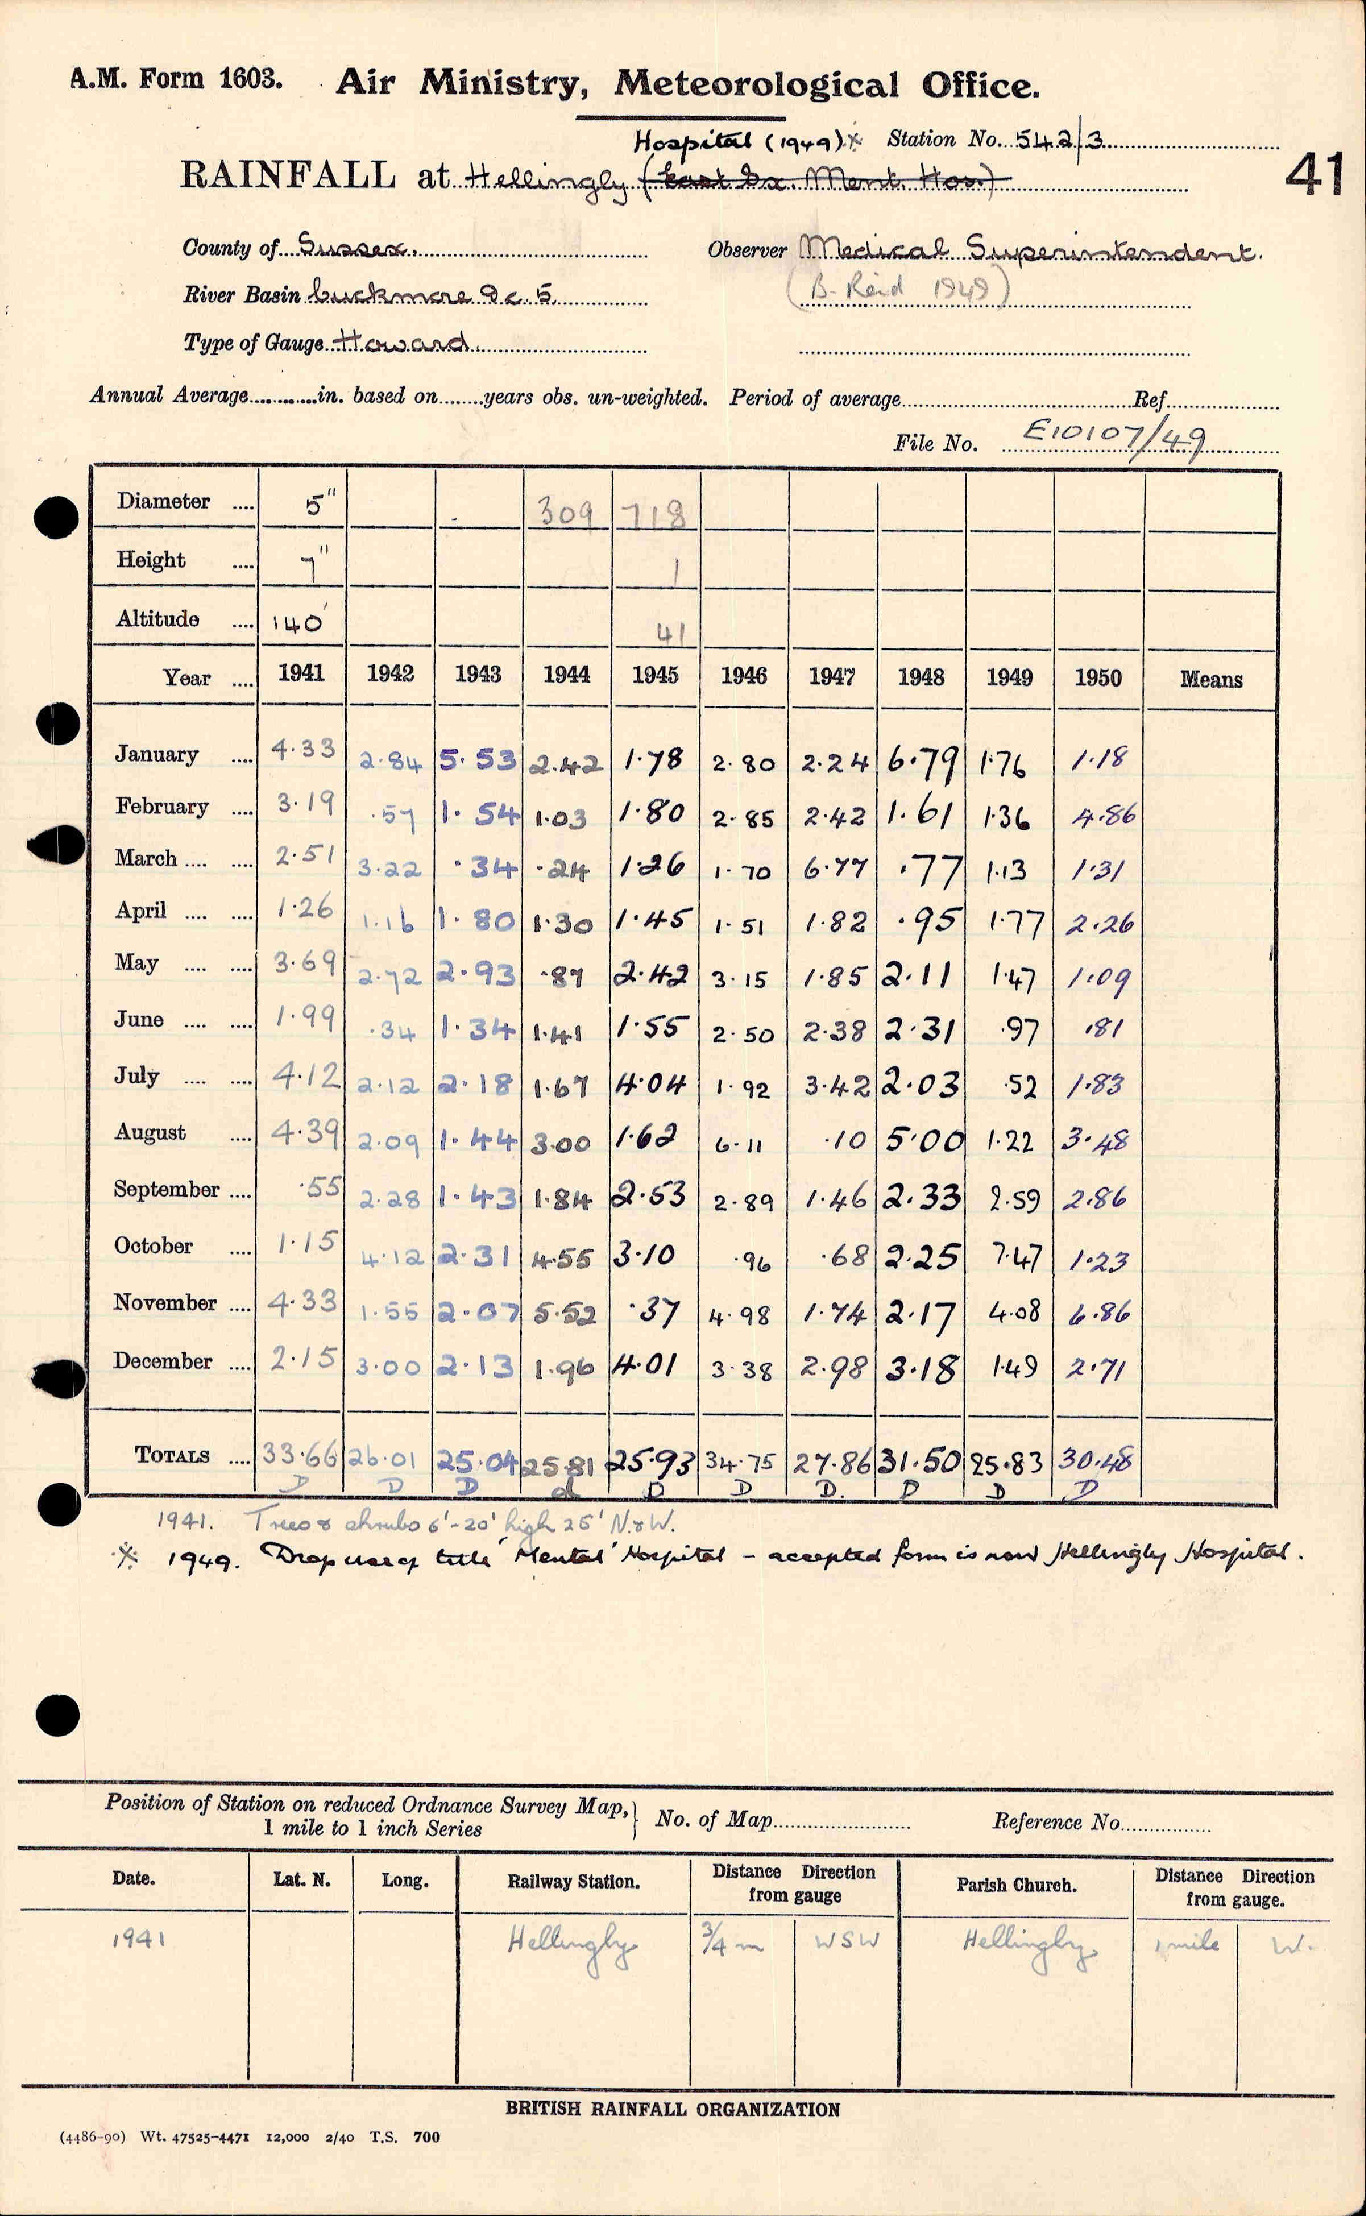 A.M. Form 1603. Air Ministry, Meteorological Office.
Hospital (1949)※ Station No. 542/3
41
RAINFALL at Hellingly (East Sx. Ment. Hos.)
County of Sussex. Observer Medical Superintendent.
River Basin Cuckmere &c. 5 (B. Reid 1949)
Type of Gauge Howard.
Annual Average............in. based on.......years obs. un-weighted. Period of average.......... Ref..........
File No. E10107/49
Diameter .... 5" 309 718
Height .... 7" 1
Altitude .... 140' 41
Year .... 1941 1942 1943 1944 1945 1946 1947 1948 1949 1950 Means
January .... 4.33 2.84 5.53 2.42 1.78 2.80 2.24 6.79 1.76 1.18
February .... 3.19 .57 1.54 1.03 1.80 2.85 2.42 1.61 1.36 4.86
March .... .... 2.51 3.22 .34 .24 1.26 1.70 6.77 .77 1.13 1.31
April .... .... 1.26 1.16 1.80 1.30 1.45 1.51 1.82 .95 1.77 2.26
May .... .... 3.69 2.72 2.93 .87 2.42 3.15 1.85 2.11 1.47 1.09
June .... .... 1.99 .34 1.34 1.41 1.55 2.50 2.38 2.31 .97 .81
July .... .... 4.12 2.12 2.18 1.67 4.04 1.92 3.42 2.03 .52 1.83
August .... 4.39 2.09 1.44 3.00 1.62 6.11 .10 5.00 1.22 3.48
September .... .55 2.28 1.43 1.84 2.53 2.89 1.46 2.33 2.59 2.86
October .... 1.15 4.12 2.31 4.55 3.10 .96 .68 2.25 7.47 1.23
November .... 4.33 1.55 2.07 5.52 .37 4.98 1.74 2.17 4.08 6.86
December .... 2.15 3.00 2.13 1.96 4.01 3.38 2.98 3.18 1.49 2.71
TOTALS .... 33.66 26.01 25.04 25.81 25.93 34.75 27.86 31.50 25.83 30.48
D D D d D D D. D D D
1941. Trees & shrubs 6'-20' high 25' N.&W.
※ 1949. Drop use of title 'Mental' Hospital – accepted form is now Hellingly Hospital.
Position of Station on reduced Ordnance Survey Map, } No. of Map.......... Reference No..........
1 mile to 1 inch Series
Date. Lat. N. Long. Railway Station. Distance Direction from gauge Parish Church. Distance Direction from gauge.
1941 Hellingly 3/4 m WSW Hellingly 1 mile W.
BRITISH RAINFALL ORGANIZATION
(4486-90) Wt. 47525-4471 12,000 2/40 T.S. 700